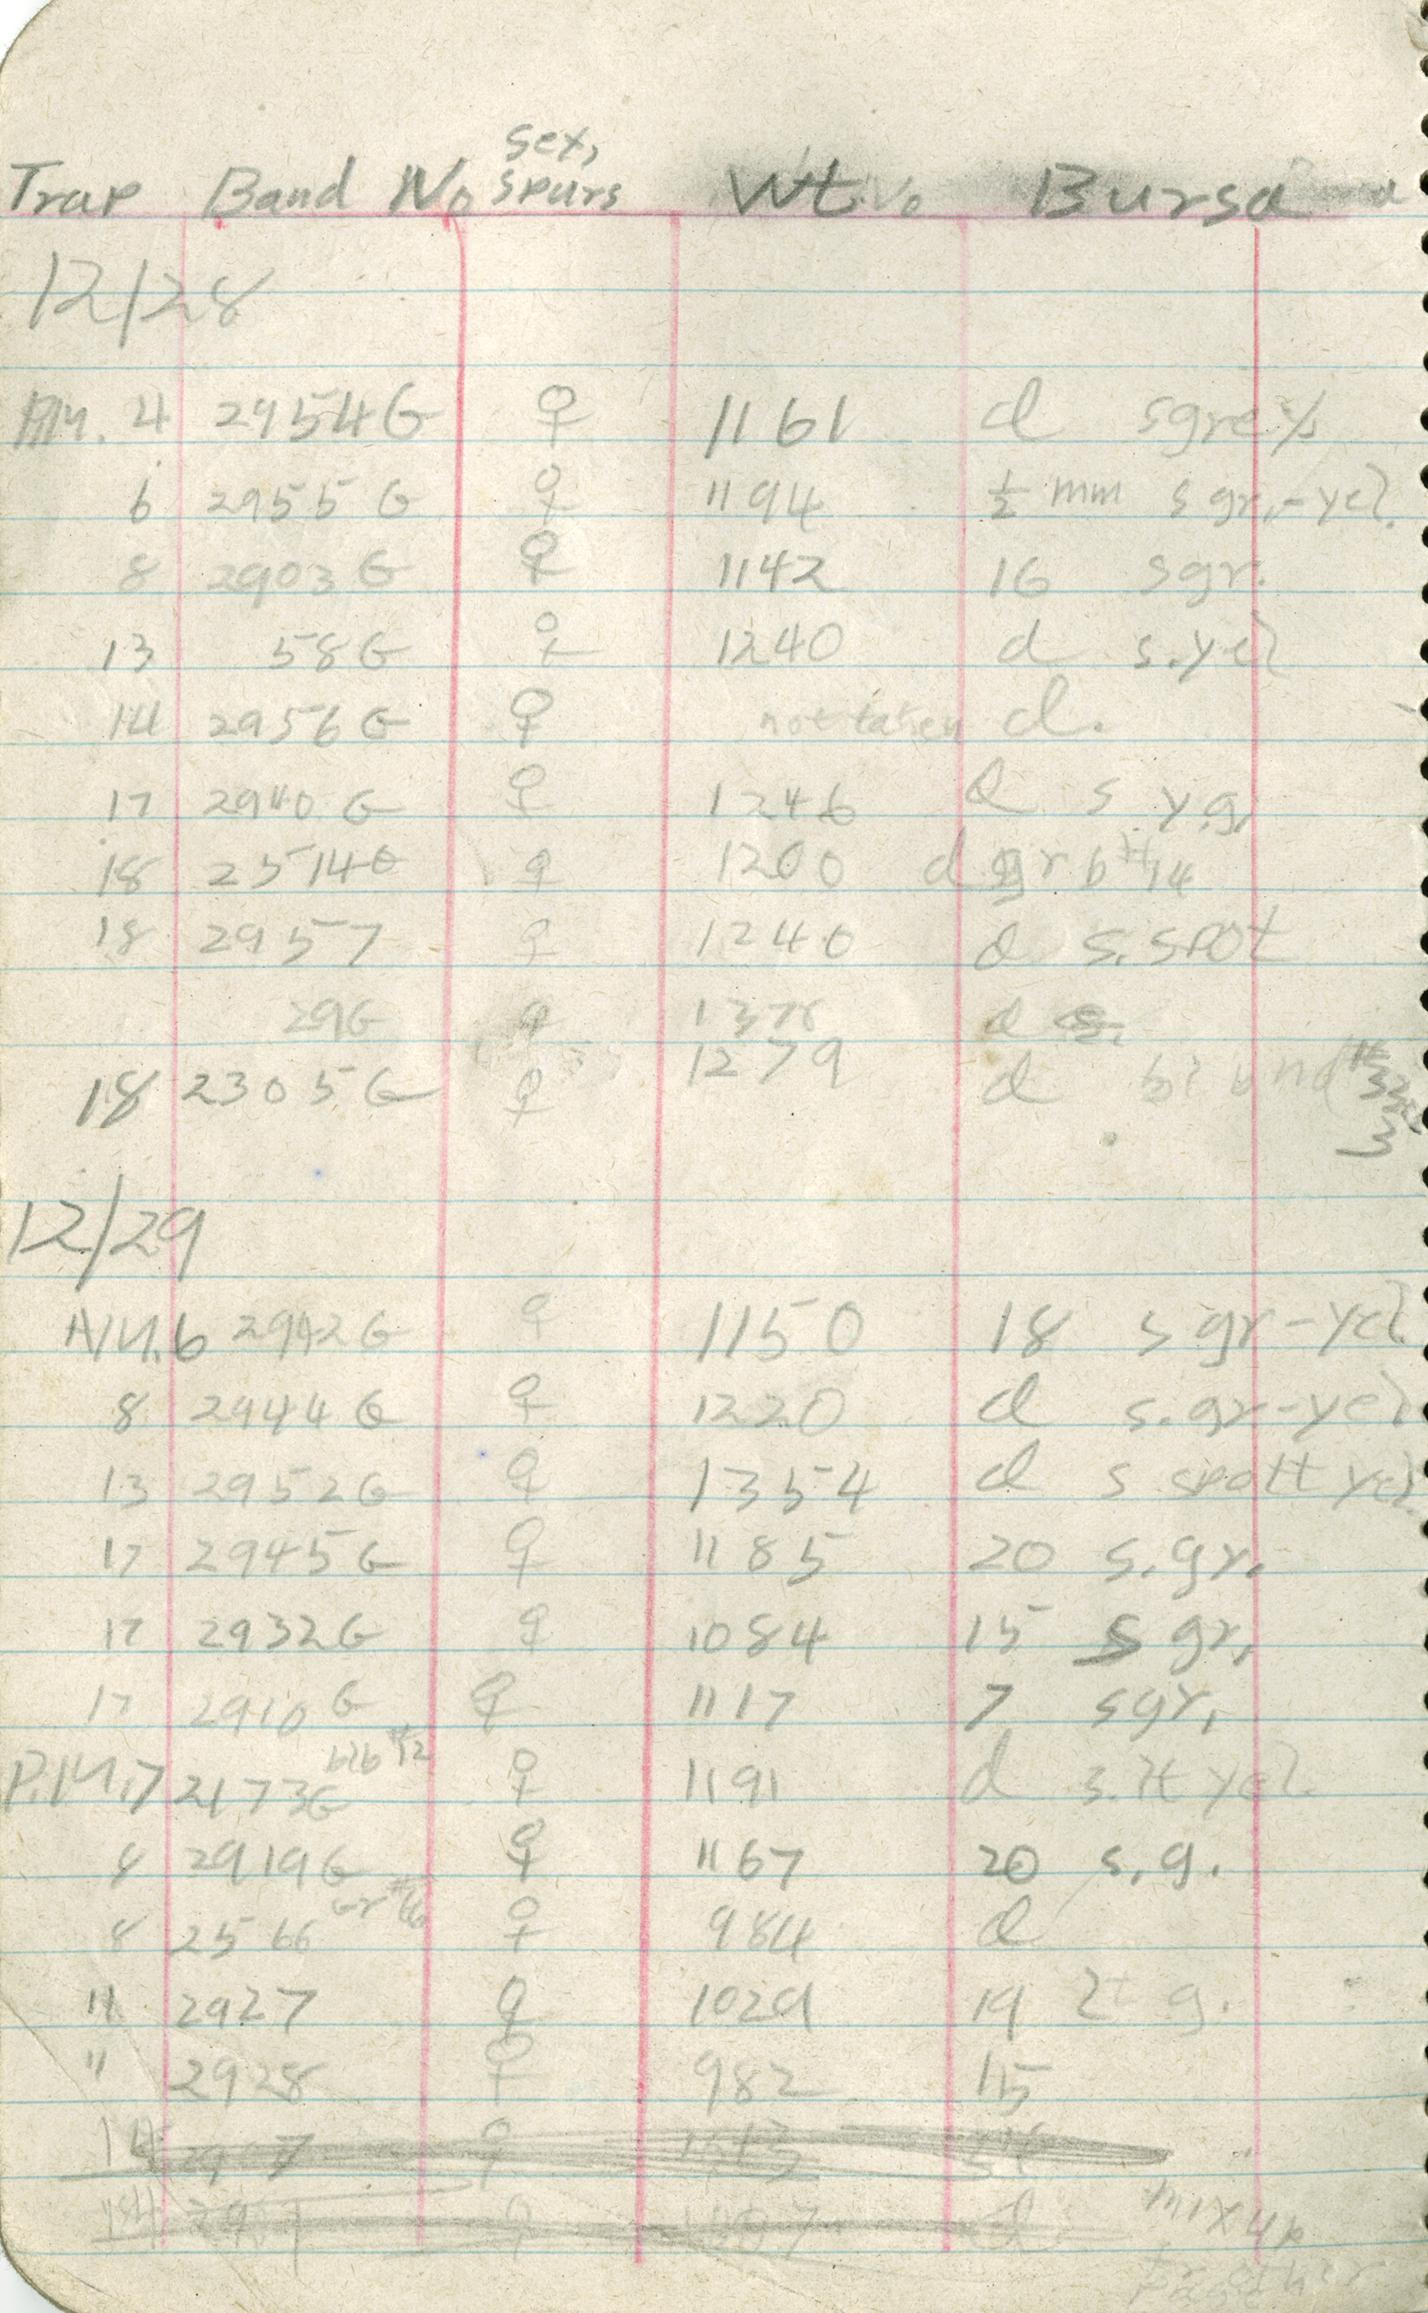 Trap Band No Sex, Spurs Wt. Bursa
12/28
AM. 4 2954G ♀ 1161 d sgrey
6 2955G ♀ 1194 ½ mm s gr.-yel.
8 2903G ♀ 1142 16 sgr.
13 58G ♀ 1240 d s.yel
14 2956G ♀ not taken d.
17 2940G ♀ 1246 d s y.g.
18 2514G ♀ 1200 d gr b #14
18 2957 ♀ 1240 d s.spot
29G ♀ d
18 2305G ♀ 1279 d
12/29
A.M.6 2942G ♀ 1150 18 s gr-yel
8 2944G ♀ 1220 d s.gr-yel
13 2952G ♀ 1354 d s spott yel.
17 2945G ♀ 1185 20 s.gr.
17 2932G ♀ 1084 15 s gr.
17 2910G ♀ 1117 7 sgr.
P.M.7 2173G blb #12 ♀ 1191 d s.lt yel.
8 2919G ♀ 1167 20 s.g.
8 2566 Gr #66 ♀ 984 d
11 2927 ♀ 1029 19 lt g.
" 2928 ♀ 982 15
♀
♀ d mix up